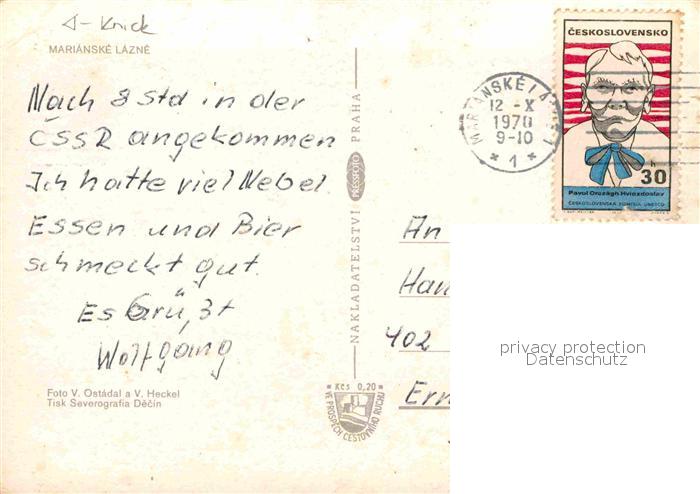 MARIÁNSKÉ LÁZNĚ
Nach 8 Std in der
ČSSR angekommen
Ich hatte viel Nebel.
Essen und Bier
schmeckt gut.
Es Grü,3t
Wolfgang
Foto V. Ostádal a V. Heckel
Tisk Severografia Děčín
NAKLADATELSTVÍ PRESSFOTO PRAHA
Kčs 0,20
VE PROSPĚCH CESTOVNÍHO RUCHU
MARIÁNSKÉ LÁZNĚ 1
12 -X
1970
9-10
* 1 *
ČESKOSLOVENSKO
30 h
Pavol Országh Hviezdoslav
ČESKOSLOVENSKÁ KOMISIA UNESCO
An
Han
402
Ern
privacy protection
Datenschutz